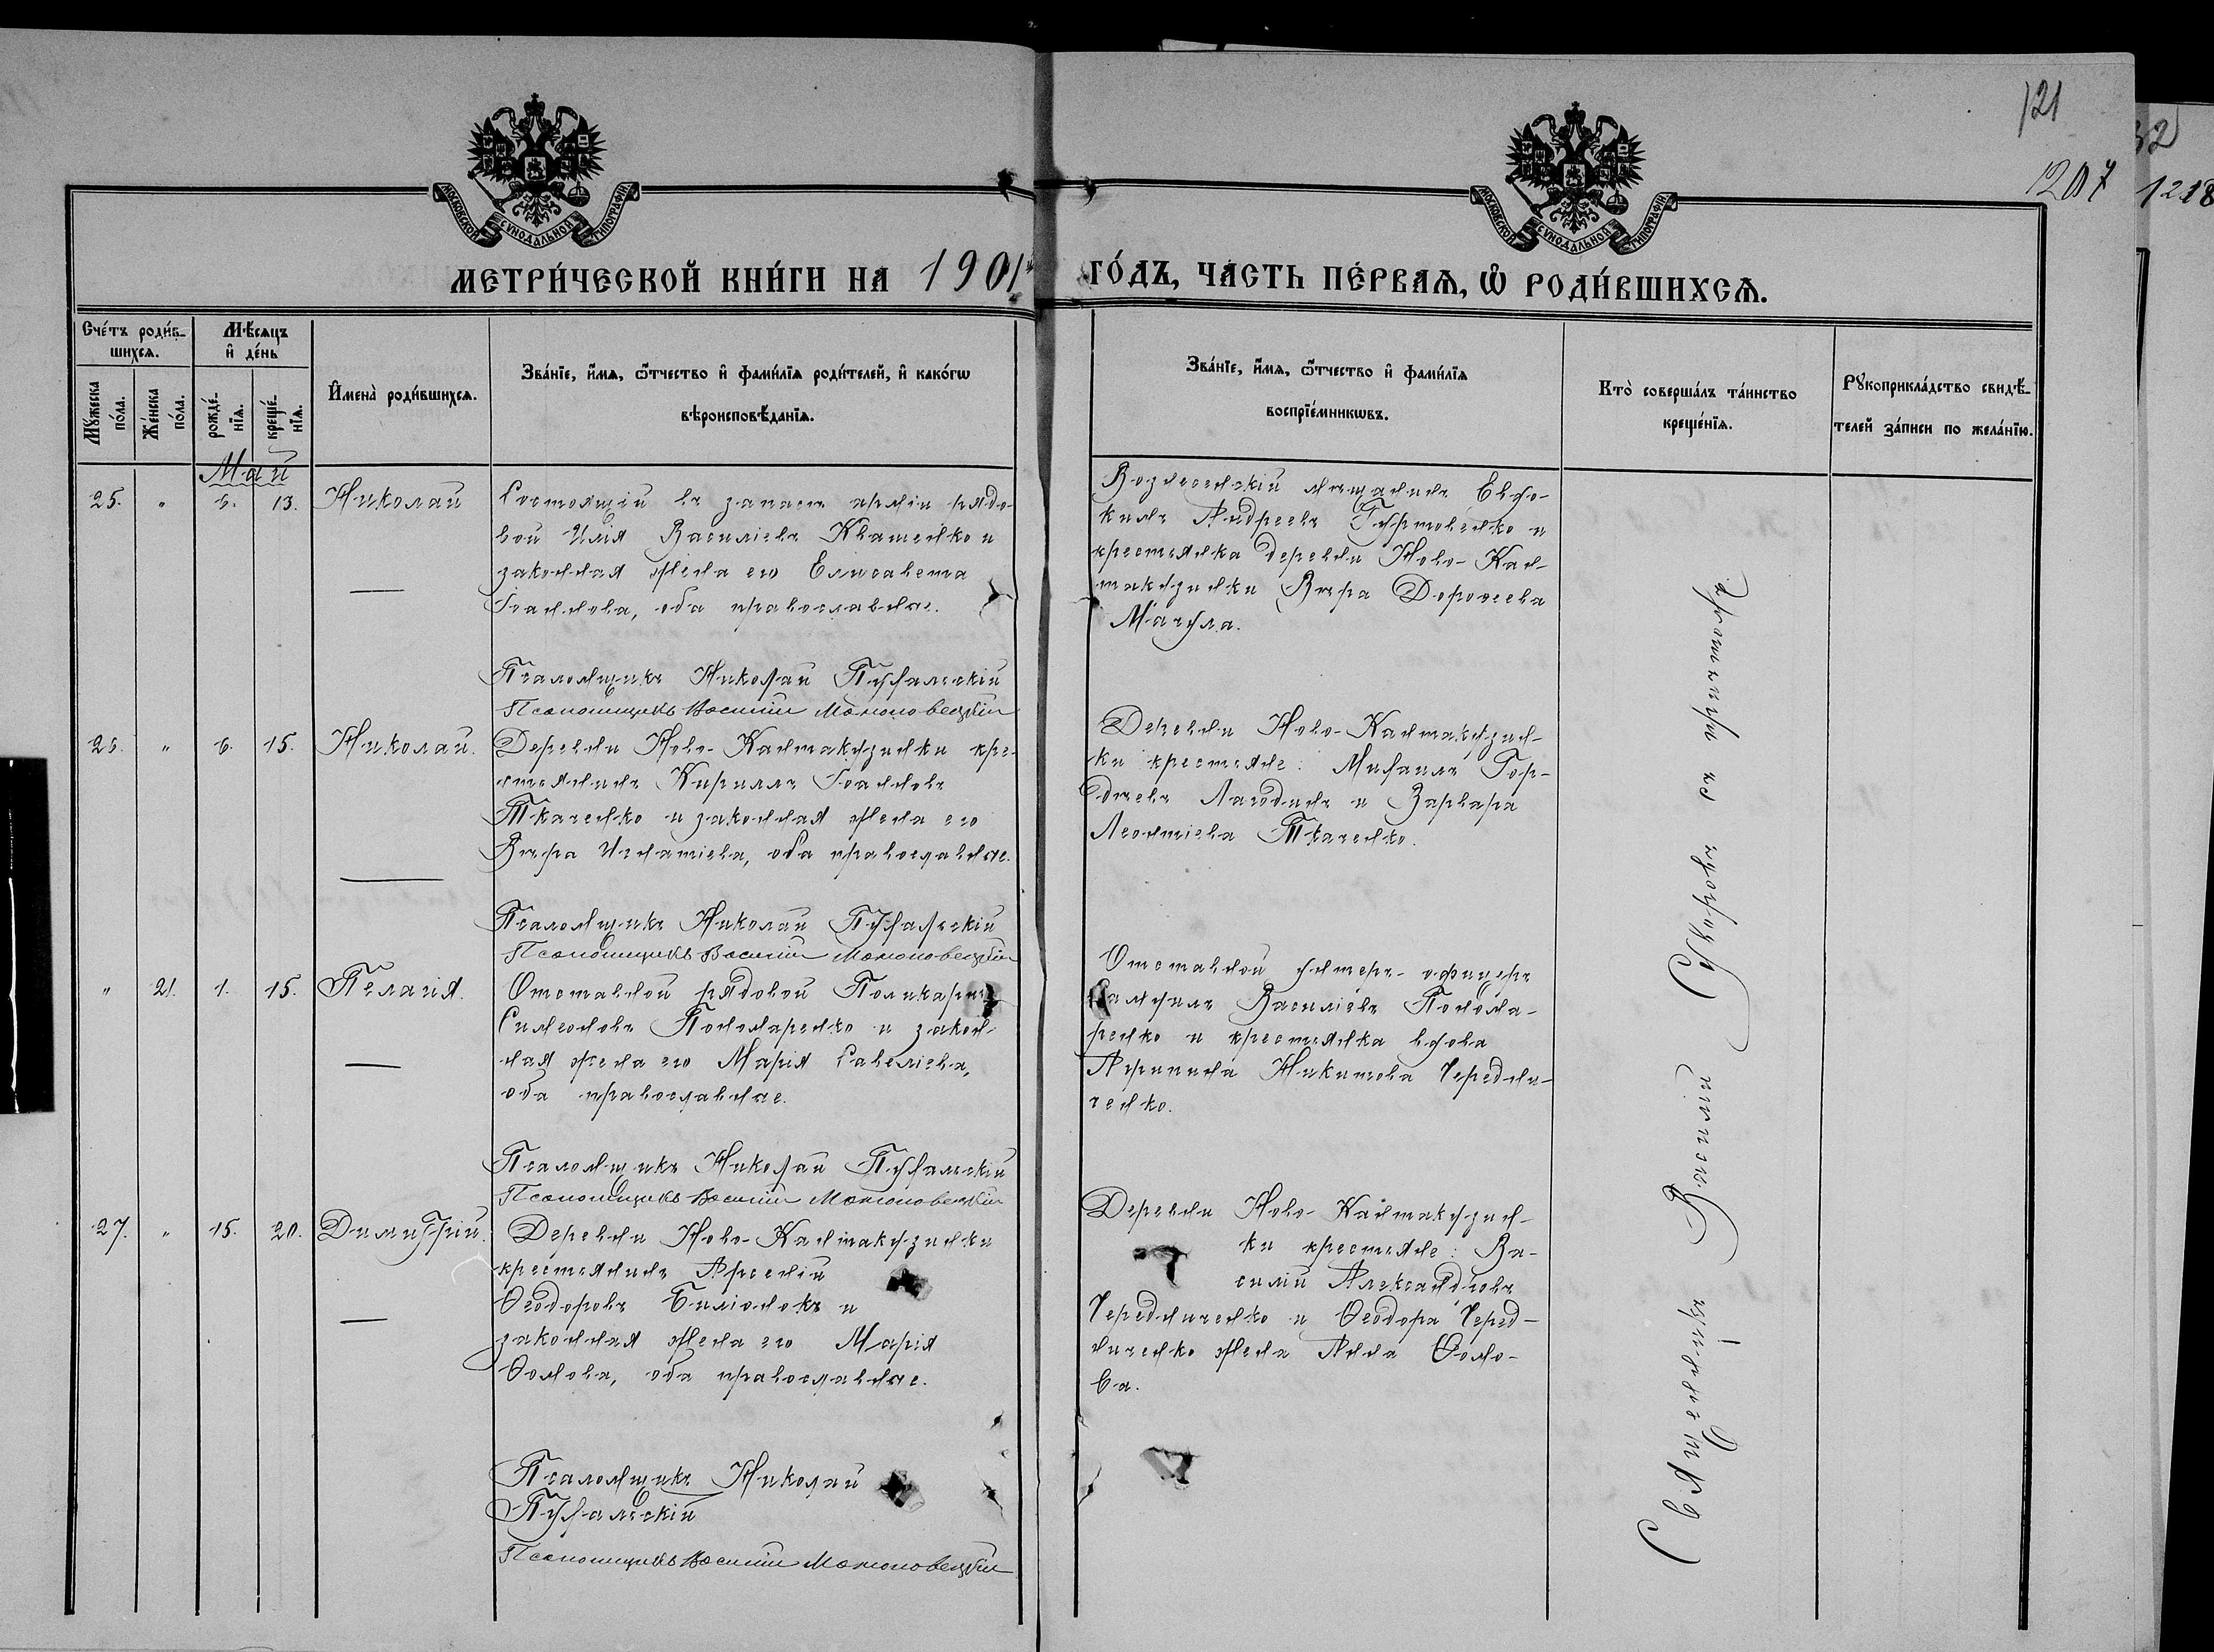 121
1207
32
1218
МОСКОВСКОЙ СѴНОДАЛЬНОЙ ТИПОГРАФІИ
МОСКОВСКОЙ СѴНОДАЛЬНОЙ ТИПОГРАФІИ
МЕТРИ́ЧЕСКОЙ КНИ́ГИ НА 1901й ГО́ДЪ, ЧА́СТЬ ПЕ́РВАЯ, Ѡ҆ РОДИ́ВШИХСЯ.
Сче́тъ роди́в-
шихся.
Мꙋ́жеска
по́ла.
Же́нска
по́ла.
Мѣ́сяцъ
и҆ де́нь
рожде́-
нїя.
креще́-
нїя.
И҆мена̀ роди́вшихся.
Зва́нїе, и҆́мя, ѻ҆́тчество и҆ фами́лїя роди́телей, и҆ како́гѡ
вѣроисповѣ́данїя.
Зва́нїе, и҆́мя, ѻ҆́тчество и҆ фами́лїя
воспрїе́мникѡвъ.
Кто̀ соверша́лъ та́инство
креще́нїя.
Рꙋкоприкла́дство свидѣ́-
телей за́писи по жела́нїю.
Май
25. " 6. 13. Николай
Состоящій въ запасѣ арміи рядо-
вой Илія Василіевъ Квашенко и
законная жена его Елисавета
Іоаннова, оба православные.
Вознесенскій мѣщанинъ Евдо-
кимъ Андреевъ Гуртовенко и
крестьянка деревни Ново-Кан-
такузинки Вѣра Дороѳеева
Мачула.
Псаломщикъ Николай
Псаломщикъ Василій
26. " 6. 15. Николай.
Деревни Ново-Кантакузинки кре-
стьянинъ Кириллъ Іоанновъ
Ткаченко и законная жена его
Вѣра Игнатіева, оба православные.
Деревни Ново-Кантакузин-
ки крестьяне: Михаилъ Гор-
дѣевъ Лагодинъ и Варвара
Леонтіева Ткаченко.
Псаломщикъ Николай
Псаломщикъ Василій
" 21. 1. 15. Пелагія.
Отставной рядовой Поликарпъ
Симеоновъ Пономаренко и закон-
ная жена его Марія Савеліева,
оба православные.
Отставной унтеръ-офицеръ
Самуилъ Василіевъ Понома-
ренко и крестьянка вдова
Агрипина Никитова Чередни-
ченко.
Псаломщикъ Николай
Псаломщикъ Василій
27. " 15. 20. Димитрій.
Деревни Ново-Кантакузинки
крестьянинъ Арсеній
Ѳеодоровъ Биліонокъ и
законная жена его Марія
Ѳомова, оба православные.
Деревни Ново-Кантакузин-
ки крестьяне: Ва-
силій Александровъ
Чередниченко и Ѳеодора Черед-
ниченко жена Анна Ѳомо-
ва.
Псаломщикъ Николай
Псаломщикъ Василій
Священникъ Василій